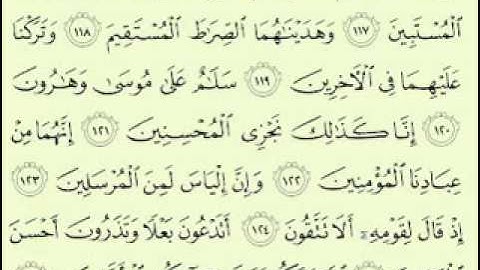 ٱلْمُسْتَبِينَ ١١٧ وَهَدَيْنَٰهُمَا ٱلصِّرَٰطَ ٱلْمُسْتَقِيمَ ١١٨ وَتَرَكْنَا
عَلَيْهِمَا فِى ٱلْءَاخِرِينَ ١١٩ سَلَٰمٌ عَلَىٰ مُوسَىٰ وَهَٰرُونَ
١٢٠ إِنَّا كَذَٰلِكَ نَجْزِى ٱلْمُحْسِنِينَ ١٢١ إِنَّهُمَا مِنْ
عِبَادِنَا ٱلْمُؤْمِنِينَ ١٢٢ وَإِنَّ إِلْيَاسَ لَمِنَ ٱلْمُرْسَلِينَ ١٢٣
إِذْ قَالَ لِقَوْمِهِۦٓ أَلَا تَتَّقُونَ ١٢٤ أَتَدْعُونَ بَعْلًا وَتَذَرُونَ أَحْسَنَ